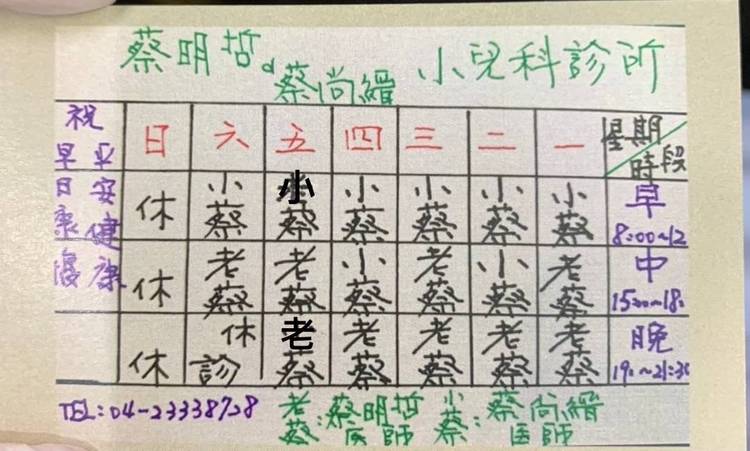 蔡明哲。蔡尚縉 小兒科診所
祝 早日康復 平安健康
日 六 五 四 三 二 一 星期 時段
休 小蔡 小蔡 小蔡 小蔡 小蔡 小蔡 早 8:00~12
休 老蔡 老蔡 小蔡 老蔡 小蔡 老蔡 中 15:00~18:
休 休診 老蔡 老蔡 老蔡 老蔡 老蔡 晚 19:~21:30
TEL:04-23338728 老蔡:蔡明哲醫師 小蔡:蔡尚縉醫師